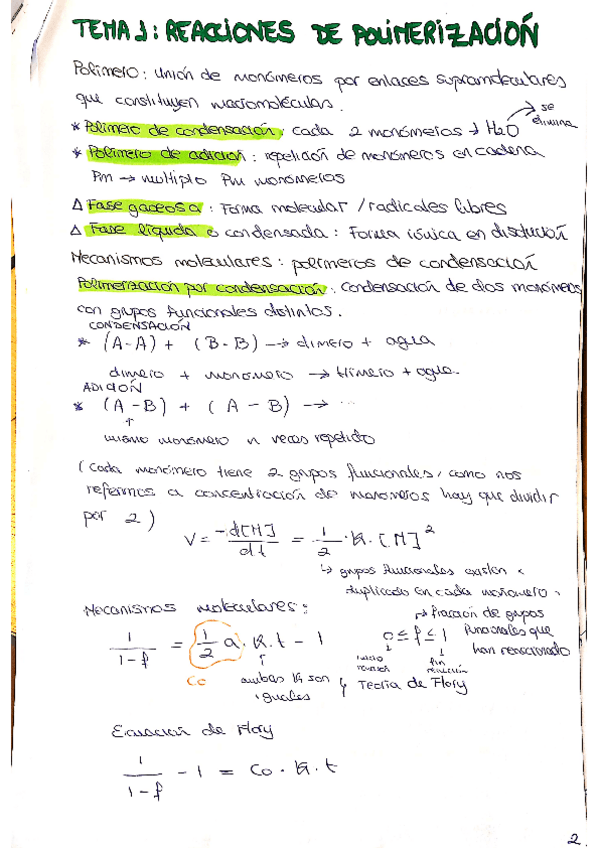 TEMA 1: REACCIONES DE POLIMERIZACIÓN
Polímero: unión de monómeros por enlaces supramoleculares
que constituyen macromoléculas.
* Polímero de condensación: cada 2 monómeros → H2O → se elimina
* Polímero de adición: repetición de monómeros en cadena
Pm → múltiplo Pm monómeros
Δ Fase gaseosa: Forma molecular / radicales libres
Δ Fase líquida o condensada: Forma iónica en disolución
Mecanismos moleculares: polímeros de condensación
Polimerización por condensación: condensación de dos monómeros
con grupos funcionales distintos.
CONDENSACIÓN
* (A-A) + (B-B) → dímero + agua
dímero + monómero → trímero + agua.
ADICIÓN
* (A-B) + (A-B) → ...
↑
mismo monómero n veces repetido
(Cada monómero tiene 2 grupos funcionales, como nos
referimos a concentración de monómeros hay que dividir
por 2)
V = -d[M]/dt = 1/2 · K · [M]²
↳ grupos funcionales están
duplicado en cada monómero.
Mecanismos moleculares:
→ fracción de grupos
funcionales que
han reaccionado
1/(1-f) = 1/2 a · K · t - 1
0 ≤ f ≤ 1
inicio reacción
fin reacción
Co
ambas K son
iguales
↳ Teoría de Flory
Ecuación de Flory
1/(1-f) - 1 = Co · K · t
2